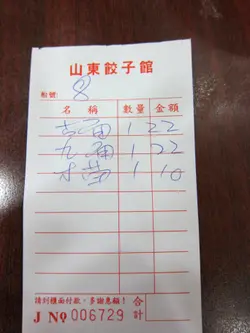 山東餃子館
枱號: 8
名 稱 數量 金額
1 22
九 1 22
1 10
請到櫃面付款,多謝惠顧! 合計
J № 006729